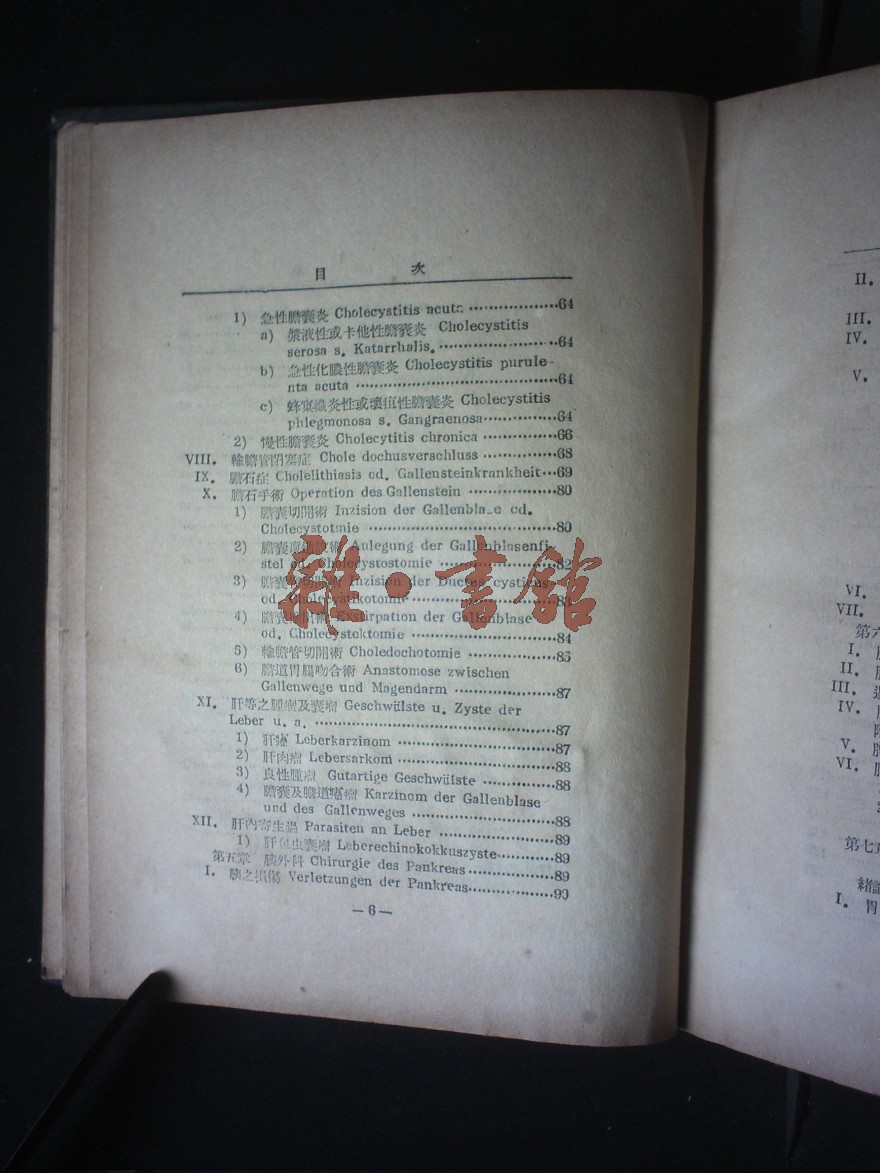 目 次
1) 急性膽囊炎 Cholecystitis acutr. 64
a) 漿液性或卡他性膽囊炎 Cholecystitis
serosa s. Katarrhalis. 64
b) 急性化膿性膽囊炎 Cholecystitis purule-
nta acuta 64
c) 蜂窩織炎性或壞疽性膽囊炎 Cholecystitis
phlegmonosa s. Gangraenosa 64
2) 慢性膽囊炎 Cholecytitis chronica 66
VIII. 輸膽管閉塞症 Chole dochusverschluss 68
IX. 膽石症 Cholelithiasis od. Gallensteinkrankheit 69
X. 膽石手術 Operation des Gallenstein 80
1) 膽囊切開術 Inzision der Gallenbla_e od.
Cholecystotmie 80
2) 膽囊 Anlegung der Gallenblasenfi-
stel od. Cholecystostomie 82
3) 膽囊 Inzision der Ductes cysticus
od. Cholecystikotomie 83
4) 膽囊 Exstirpation der Gallenblase
od. Cholecystektomie 84
5) 輸膽管切開術 Choledochotomie 85
6) 膽道胃腸吻合術 Anastomose zwischen
Gallenwege und Magendarm 87
XI. 肝等之腫瘤及囊瘤 Geschwülste u. Zyste der
Leber u. a. 87
1) 肝癌 Leberkarzinom 87
2) 肝肉瘤 Lebersarkom 88
3) 良性腫瘤 Gutartige Geschwülste 88
4) 膽囊及膽道癌瘤 Karzinom der Gallenblase
und des Gallenweges 88
XII. 肝內寄生蟲 Parasiten an Leber 89
1) 肝包虫囊瘤 Leberechinokokkuszyste 89
第五章 胰外科 Chirurgie des Pankreas 89
I. 胰之損傷 Verletzungen der Pankreas 90
—6—
雜·書舘
II.
III.
IV.
V.
VI.
VII.
第六
I.
II.
III.
IV.
V.
VI.
第七
緒
I. 胃